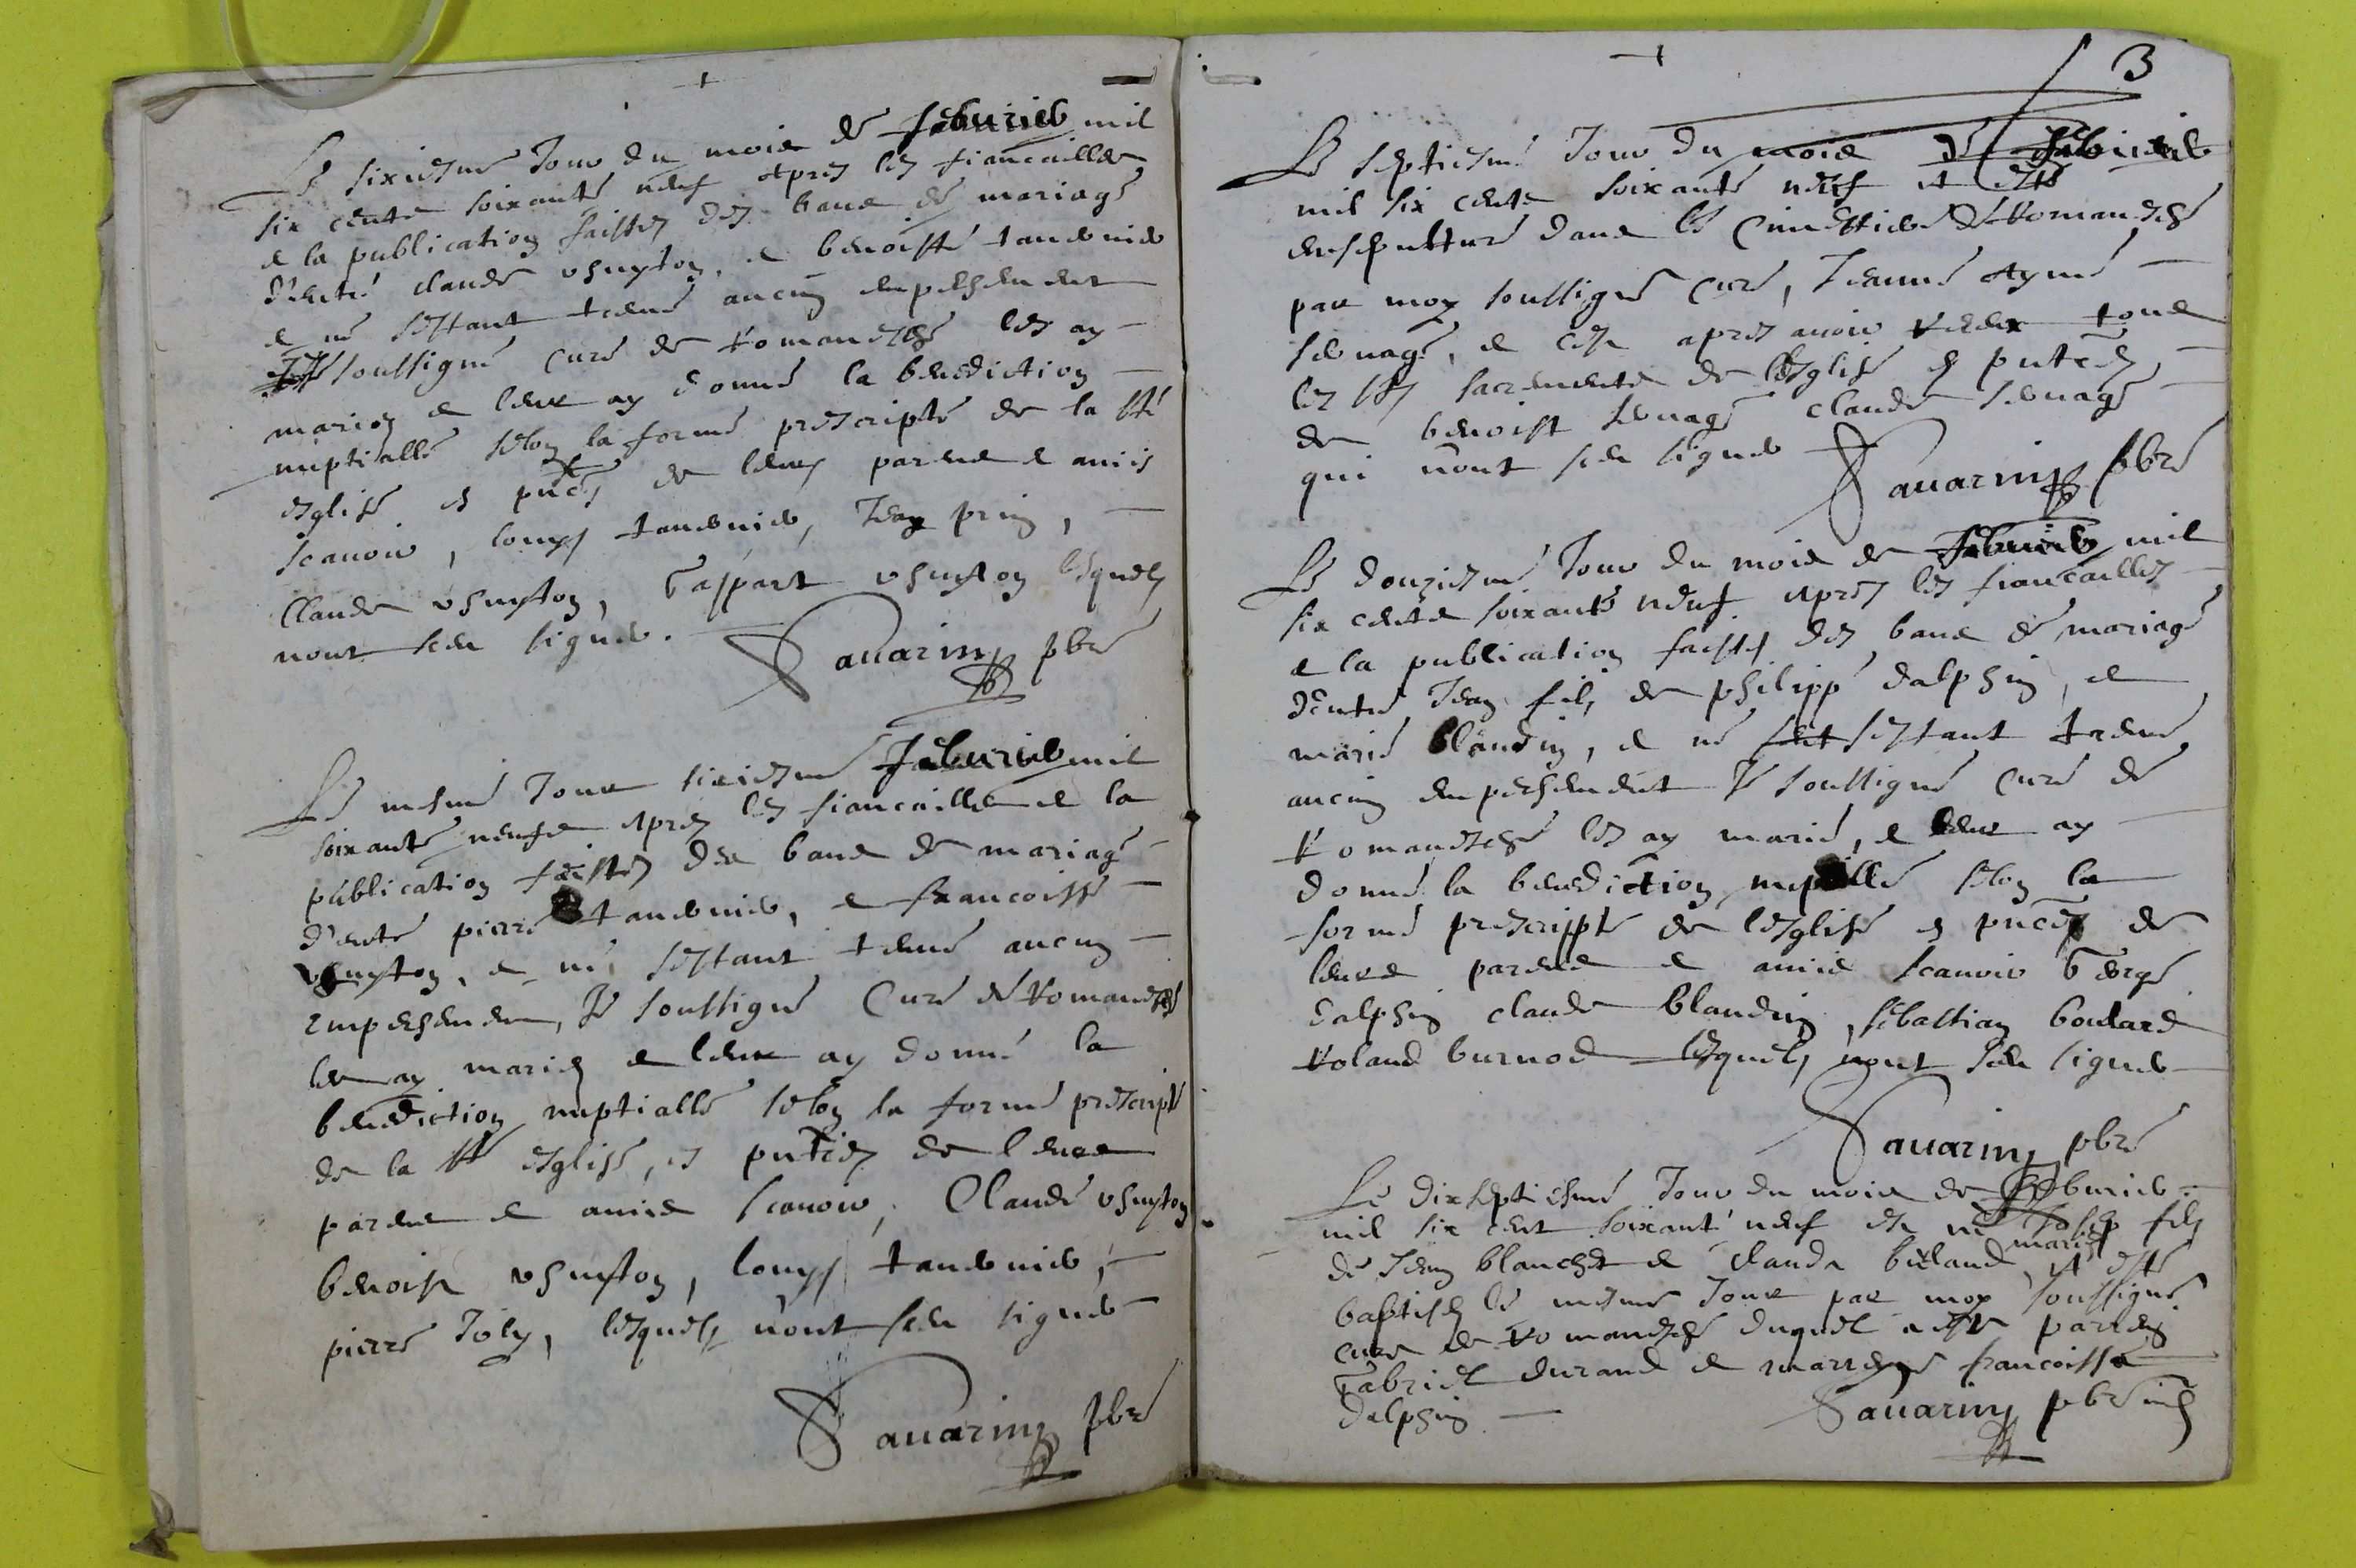 Le sixiesme Jour du mois de feburier mil
six cents soixante neuf apres les fiancailles
e la publication faistes des bans de mariage
d'entre claude uhuyton, e benoiste tauernier
e ne sestant treuué aucung empeschement
soussigné curé de Romanesche les ay
mariez e leur ay donné la benediction
nuptialle selon la forme prescripte de la ste
esglise es pnces de leurs parens e amis
scauoir, louys tauernier, Jean prin,
Claude uhuyton, Gaspart uhuyton lesquels
nont sceu signer.
Sauarin pbre
Le mesme Jour sixiesme feburier mil
soixante neufe apres les fiancailles e la
publication faistes des bans de mariage
d'ente pierre tauernier, e francoisse
uhuyton, e ne sestant treuué aucung
empeschemen, Je soussigné Curé de Romanesche
les ay mariez e leur ay donné la
benediction nuptialle selon la forme prescripte
de la ste esglise, es putces de leurs
parens e amis scauoir, Claude uhuyton
benoist uhuyton, louys tauernier,
pierre Joly, lesquels n'ont sceu signer
Sauarin pbre
3
Le septiesme Jour du mois de feburier
mil six cents soixante neuf at esté
ensepulturé dans le Cimestiere de Romanesche
par moy soussigné Curé, Jeanne Aymé
seuuage, e ce apres auoir receu tous
les sts sacrements de lesglise es putces
de benoist seuuage claude seuuage
qui n'ont sceu signer
Sauarin pbre
Le douziesme Jour du mois de feburier mil
six cents soixante neuf apres les fiancailles
e la publication faistes des bans de mariage
d'entre Jean fils de philippe dalphin, e
marie blandin, e ne sestant treuué
aucung empeschement Je soussigné Curé de
Romanesche les ay marié, e leur ay
donné la benediction nuptialle selon la
forme prescripte de lesglise es pnces de
leurs parens e amis scauoir George
dalphin claude blandin, sebastian boulard
Roland burnod lesquels n'ont sceu signer
Sauarin pbre
Le dixseptiesme Jour du mois de feburier
mil six cent soixant neuf est né Josep fils
de Jean blanchet e claude bieland mariez, at esté
baptisez le mesme Jour par moy soussigné
curé de Romanesche duquel a esté parreng
Gabriel durand e marrenne francoisse
dalphin
Sauarin pbre